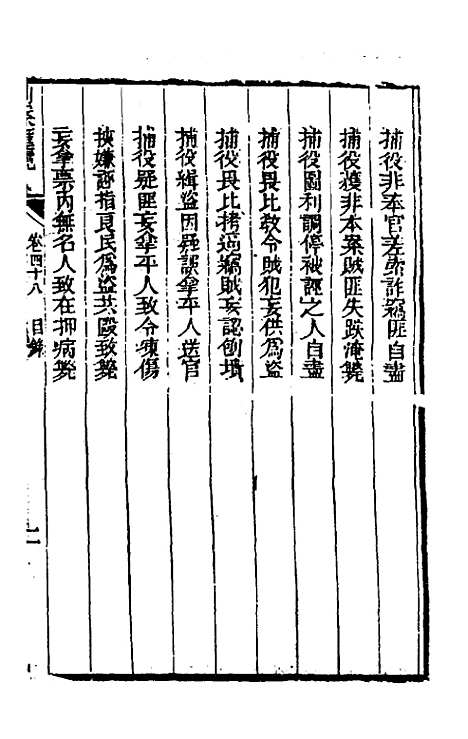 捕役非奉官差嚇詐竊匪自盡
捕役獲非本案賊匪失跌淹斃
捕役圖利調停被誣之人自盡
捕役畏比教令賊犯妄供為盜
捕役畏比拷逼竊賊妄認刨墳
捕役緝盜因疑誤拿平人送官
捕役疑匪妄拿平人致令凍傷
挾嫌誣指良民為盜共毆致斃
妄拿票內無名人致在押病斃
卷四十八 目錄